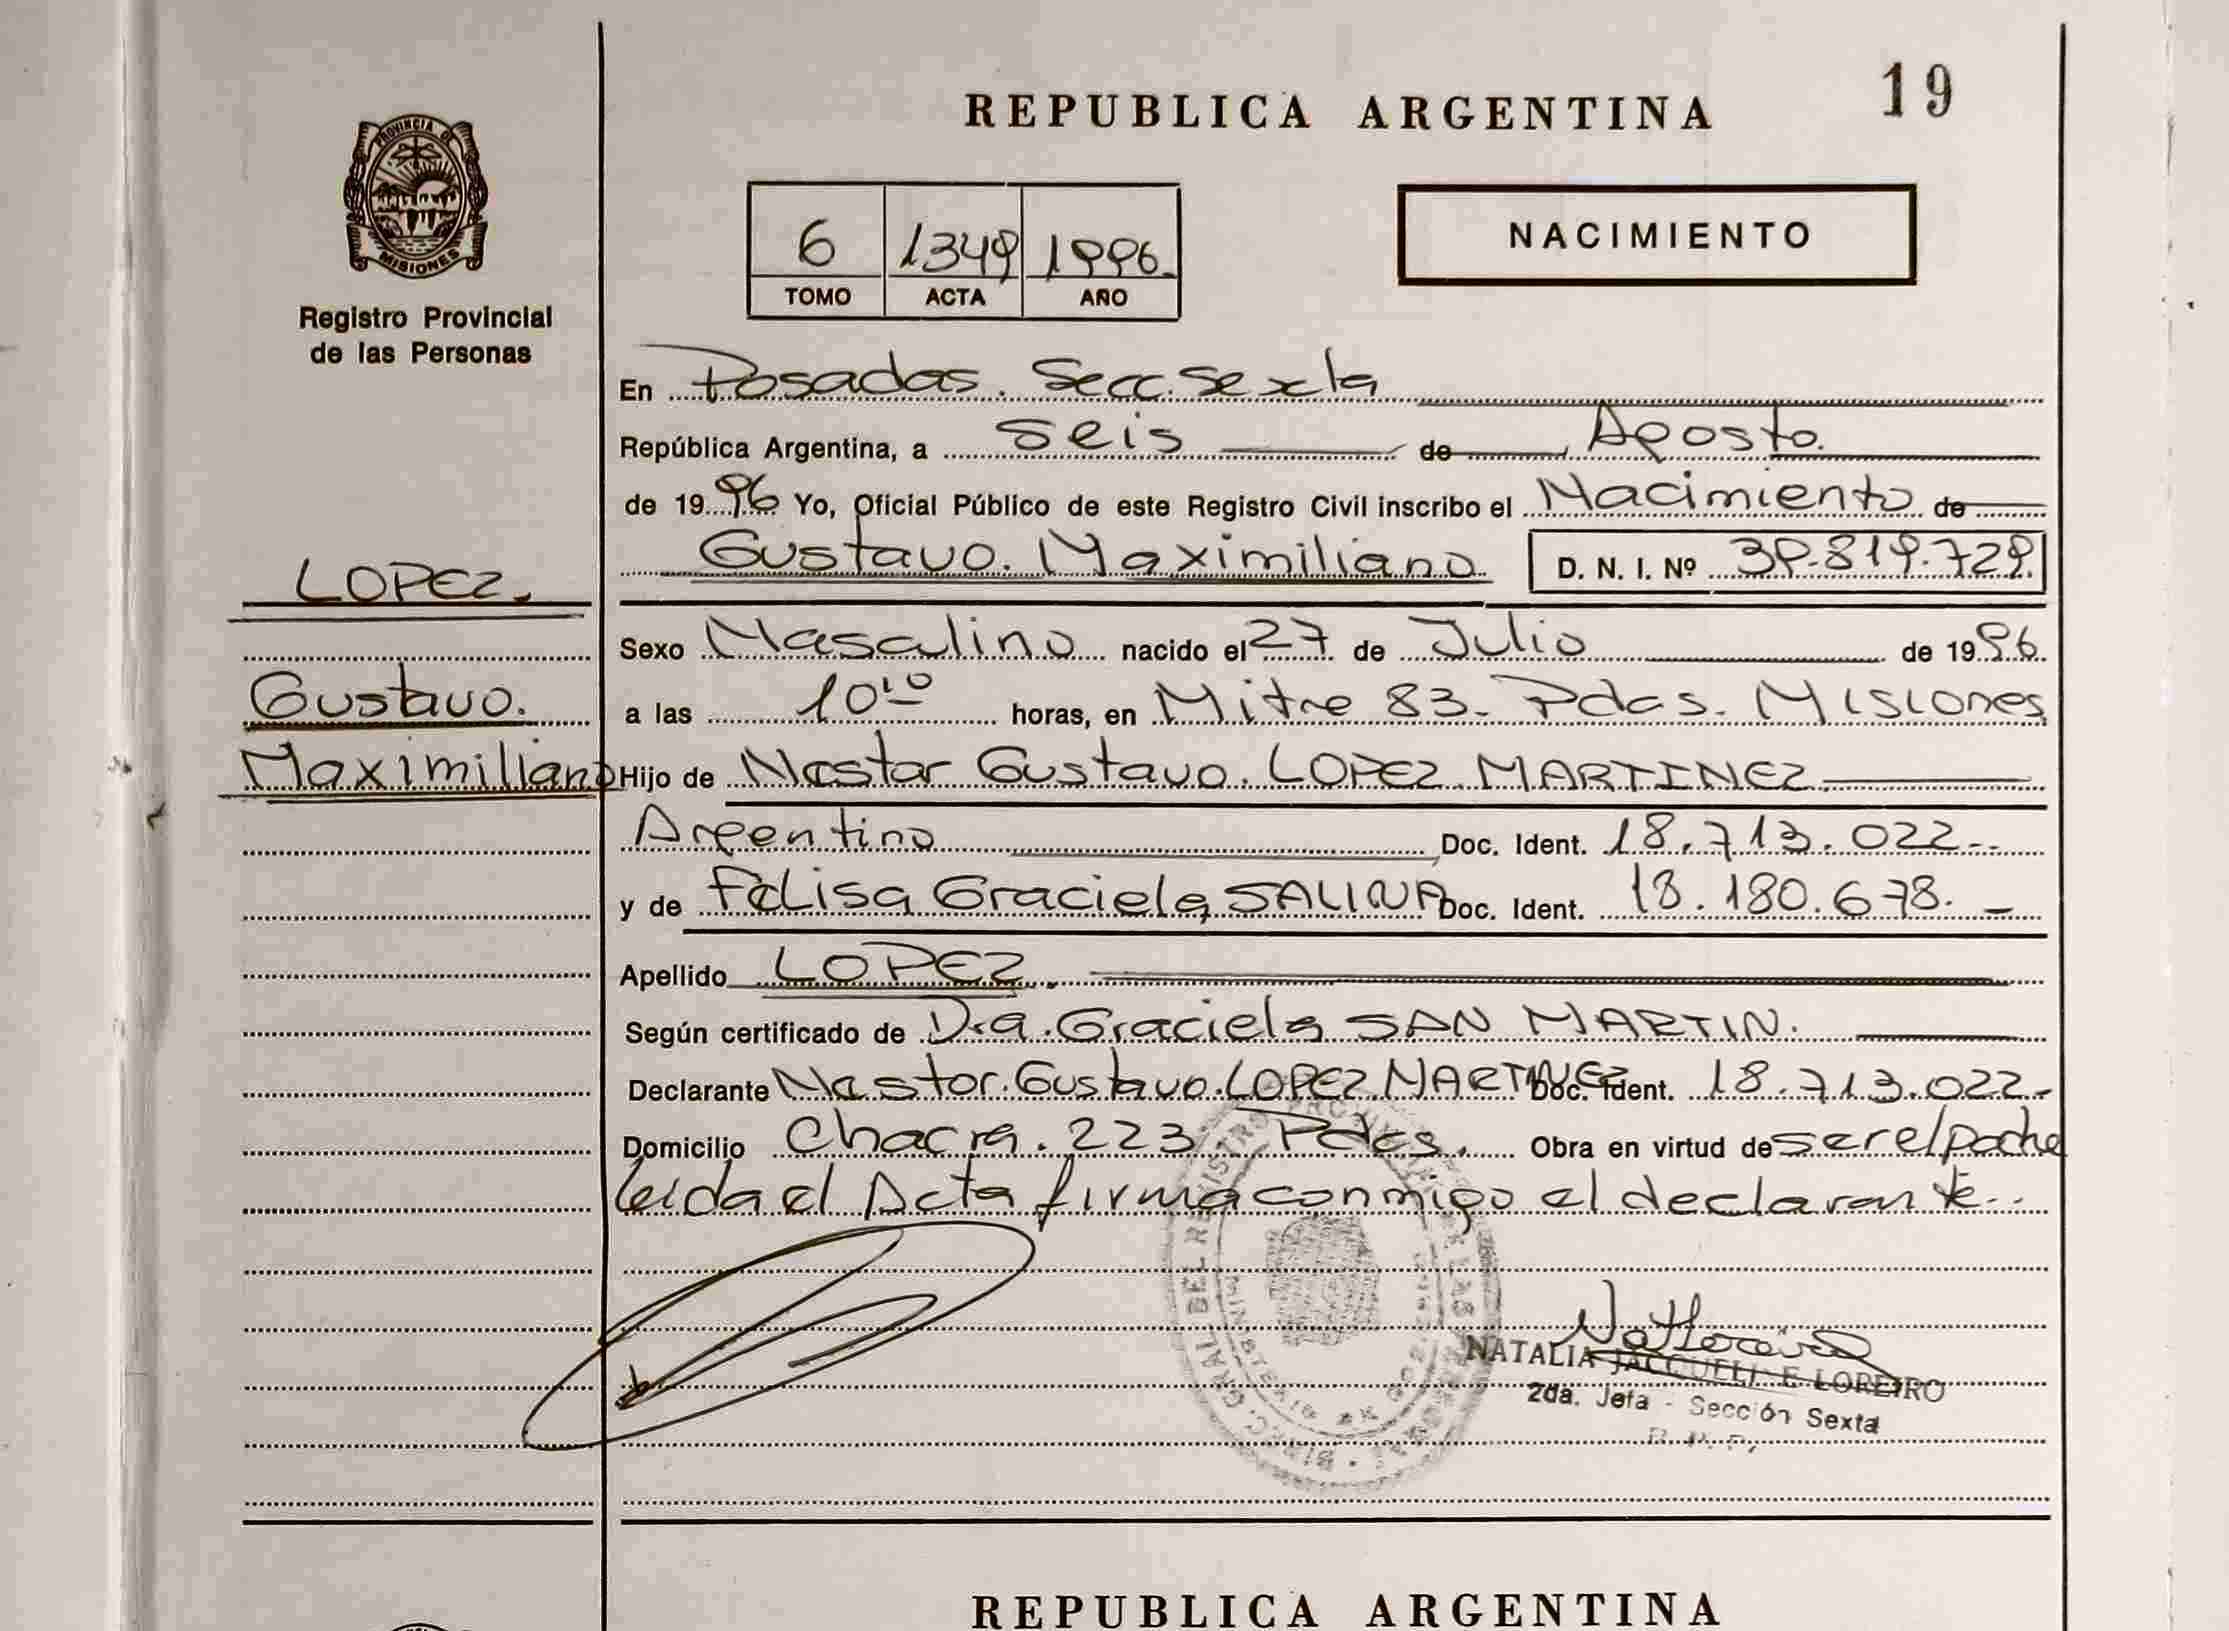 REPUBLICA ARGENTINA 19
PROVINCIA DE
MISIONES
Registro Provincial
de las Personas
6 1349 1996
TOMO ACTA AÑO
NACIMIENTO
En Posadas. Secc. Sexta
República Argentina, a seis de Agosto.
de 1996 Yo, Oficial Público de este Registro Civil inscribo el Nacimiento de
Gustavo. Maximiliano D. N. I. Nº 39.819.729.
LOPEZ.
Sexo Masculino nacido el 27 de Julio de 1996.
Gustavo.
a las 10 10 horas, en Mitre 83. Pdas. Misiones
Maximiliano
Hijo de Nestor Gustavo. LOPEZ MARTINEZ
Argentino Doc. Ident. 18.713.022.
y de Felisa Graciela SALINA Doc. Ident. 18.180.678.
Apellido LOPEZ.
Según certificado de Dra. Graciela SAN MARTIN.
Declarante Nestor. Gustavo. LOPEZ MARTINEZ Doc. Ident. 18.713.022.
Domicilio Chacra. 223 Pdas. Obra en virtud de ser el padre
leida el Acta firma conmigo el declarante
NATALIA JACQUELINE LOREIRO
2da. Jefa - Sección Sexta
R. P. P.
REPUBLICA ARGENTINA